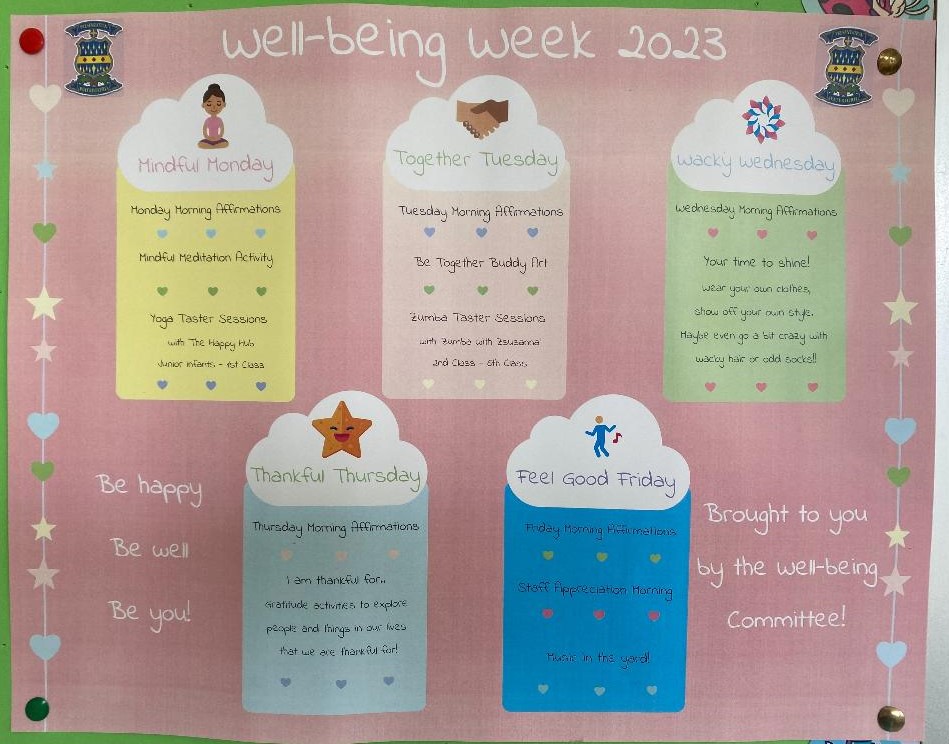 well-being week 2023
Mindful Monday
Monday Morning Affirmations
Mindful Meditation Activity
Yoga Taster Sessions
with The Happy Hub
Junior Infants - 1st Class
Together Tuesday
Tuesday Morning Affirmations
Be Together Buddy Art
Zumba Taster Sessions
with Zumba with Zsuzanna
2nd Class - 6th Class
Wacky Wednesday
Wednesday Morning Affirmations
Your time to shine!
Wear your own clothes,
show off your own style.
Maybe even go a bit crazy with
wacky hair or odd socks!!
Thankful Thursday
Thursday Morning Affirmations
I am thankful for..
Gratitude activities to explore
people and things in our lives
that we are thankful for!
Feel Good Friday
Friday Morning Affirmations
Staff Appreciation Morning
Music in the yard!
Be happy
Be well
Be you!
Brought to you
by the well-being
Committee!